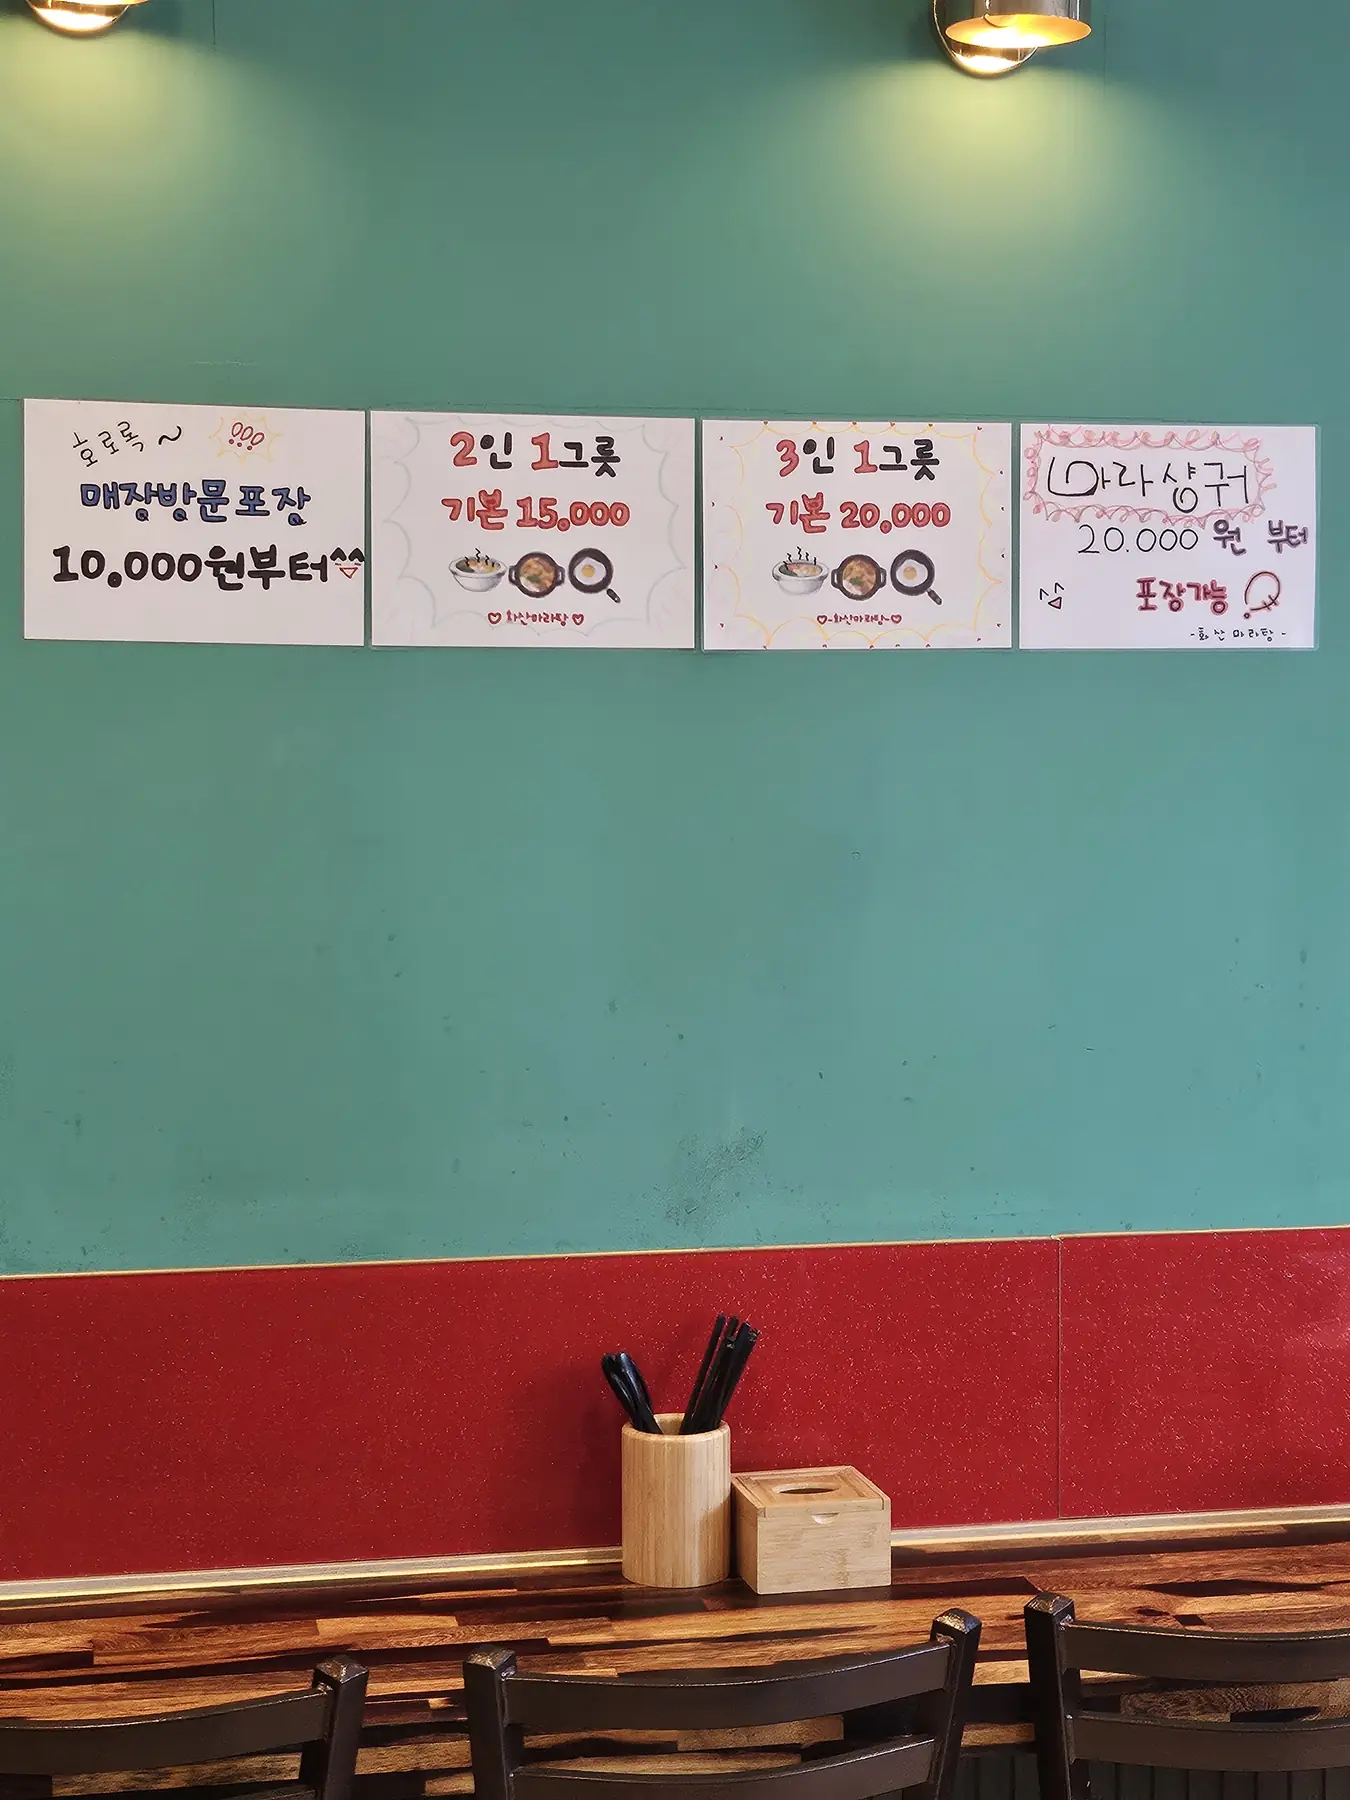 호로록~ !!!
매장방문포장
10,000원부터^^
2인 1그릇
기본 15,000
♡ 화산마라탕 ♡
3인 1그릇
기본 20,000
♡-화산마라탕-♡
마라샹궈
20.000 원 부터
포장가능
-화산마라탕-